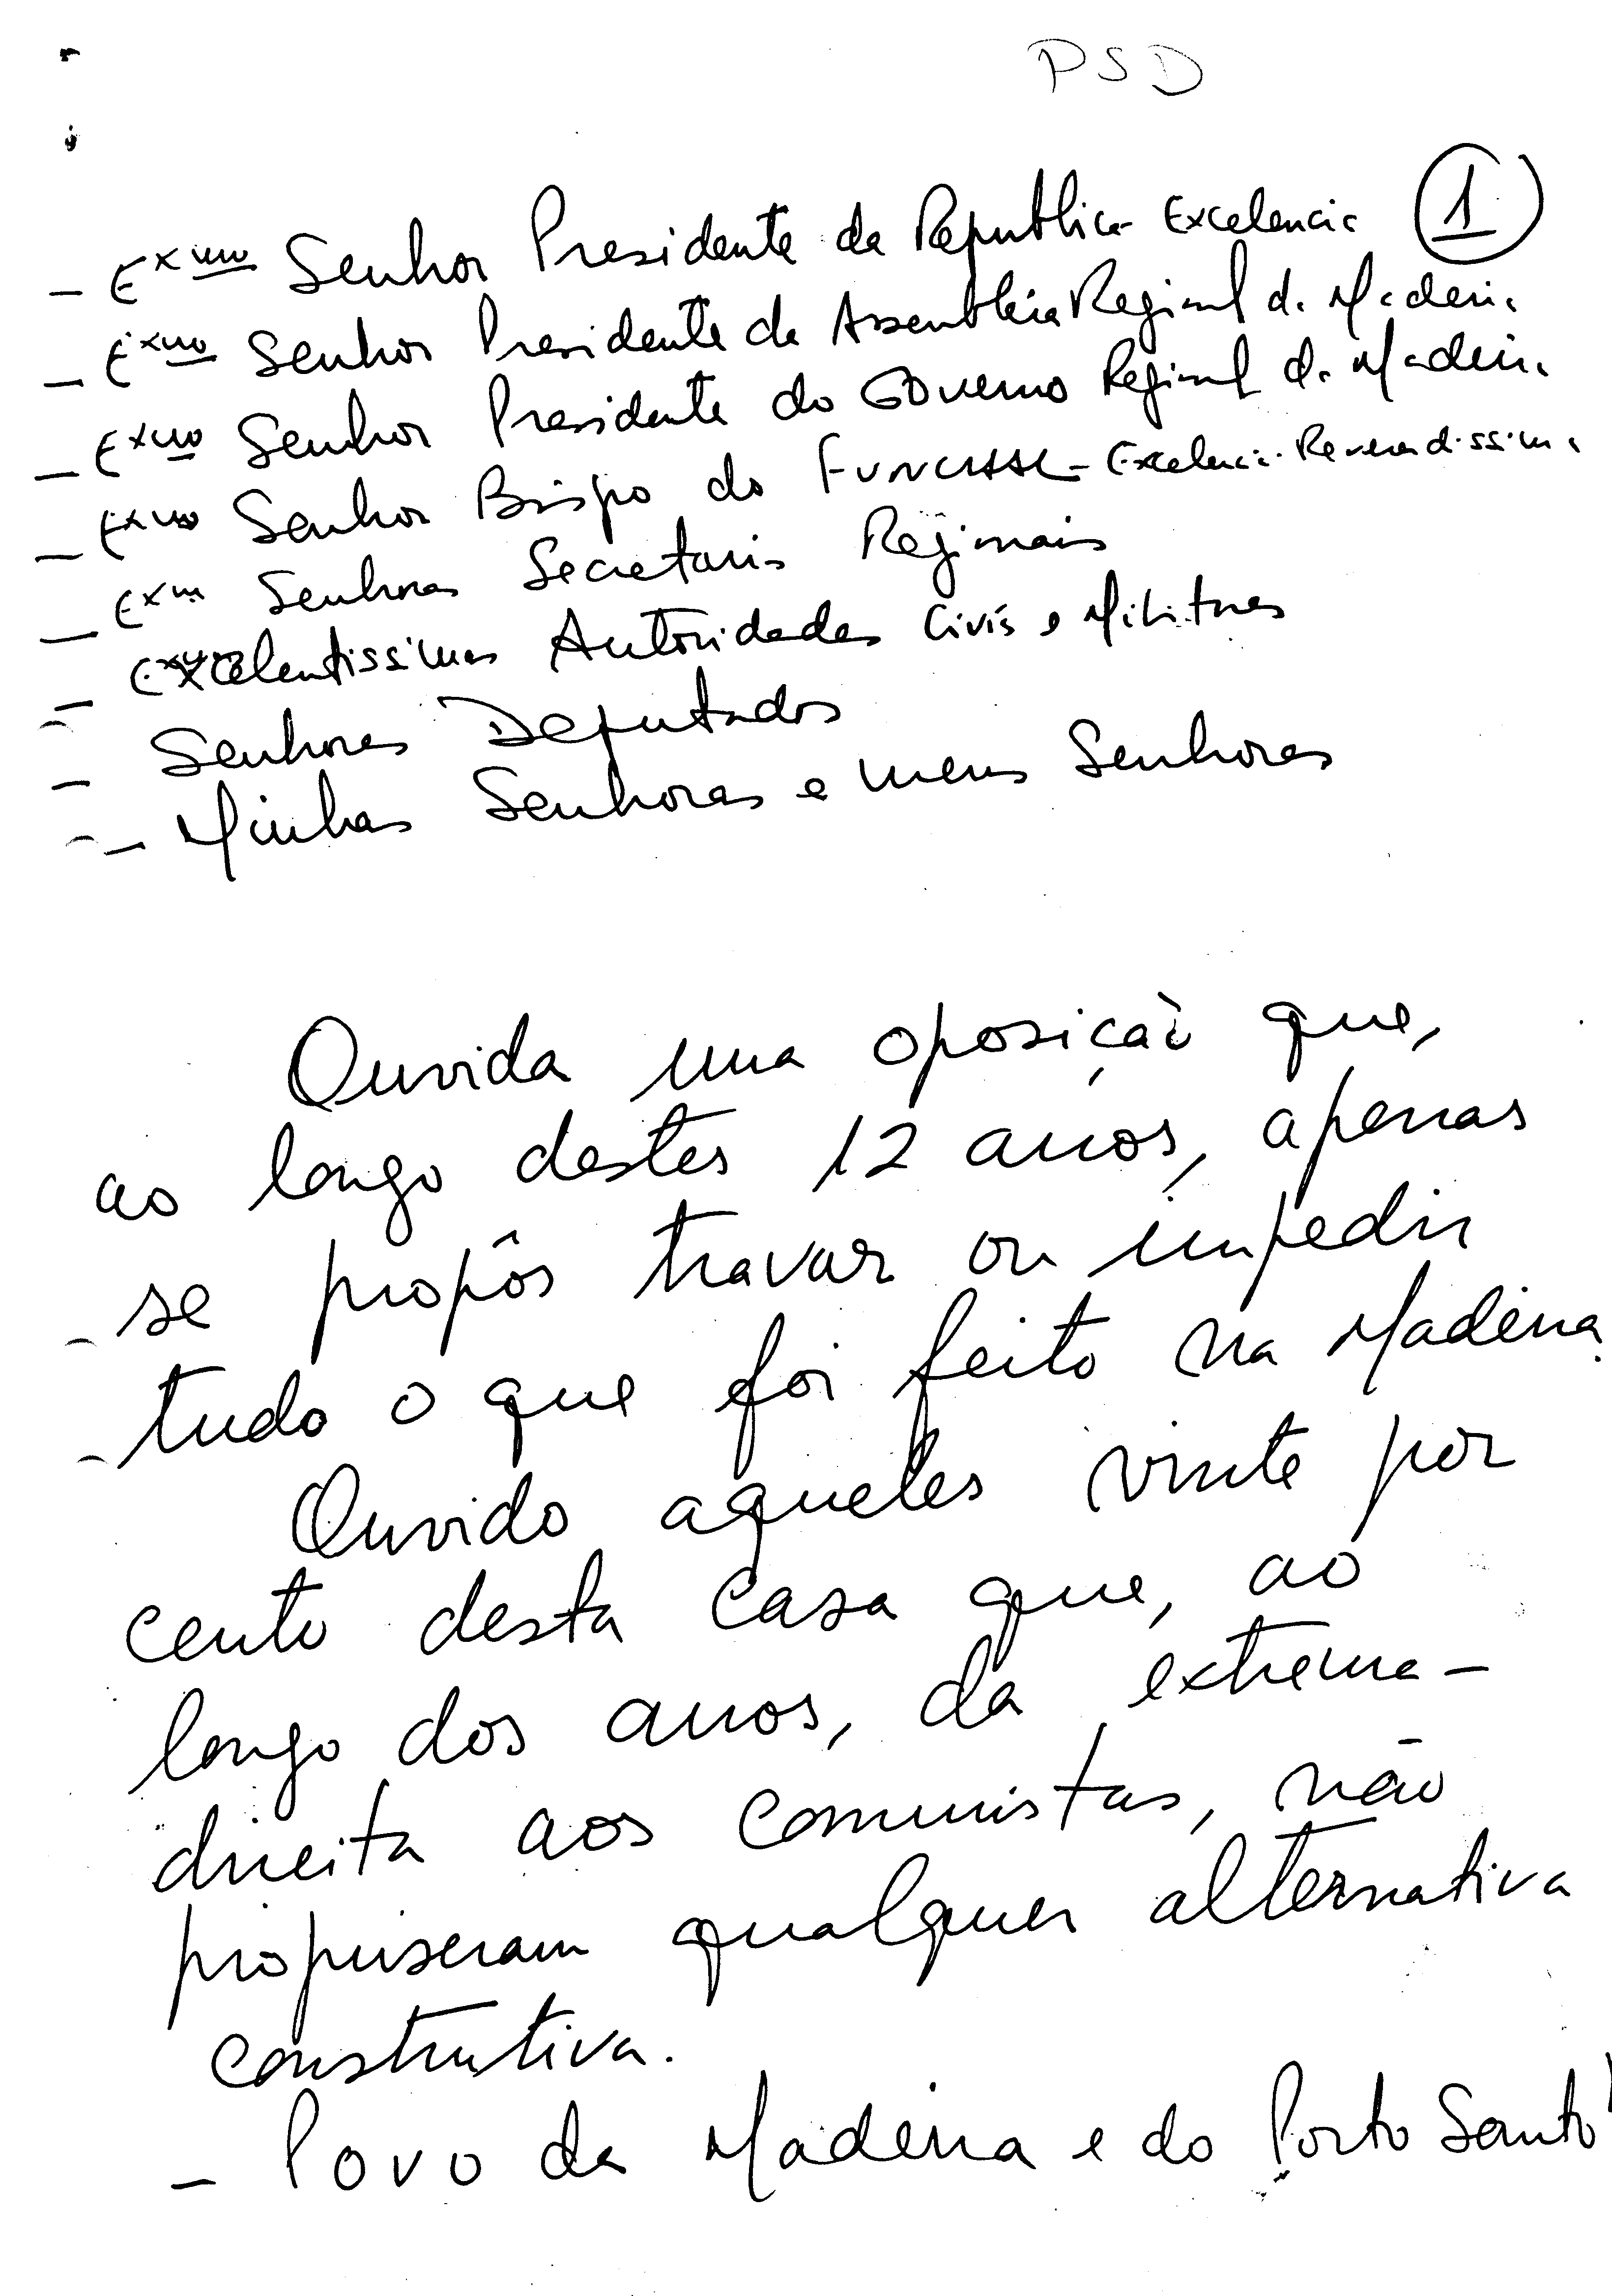 PSD
1
- Exmo Senhor Presidente da Republica - Excelencia
- Exmo Senhor Presidente da Assembleia Regional da Madeira
- Exmo Senhor Presidente do Governo Regional da Madeira
- Exmo Senhor Bispo do FUNCHAL - Excelencia Reverendissima
- Exm Senhores Secretarios Regionais
- Excelentissimas Autoridades Civis e Militares
- Senhores Deputados
- Minhas Senhoras e meus Senhores
Ouvida uma oposição que,
ao longo destes 12 anos, apenas
se propôs travar ou impedir
tudo o que foi feito na Madeira.
Ouvido aqueles vinte por
cento desta casa que, ao
longo dos anos, da extrema-
direita aos comunistas, não
propuseram qualquer alternativa
construtiva.
- Povo da Madeira e do Porto Santo!